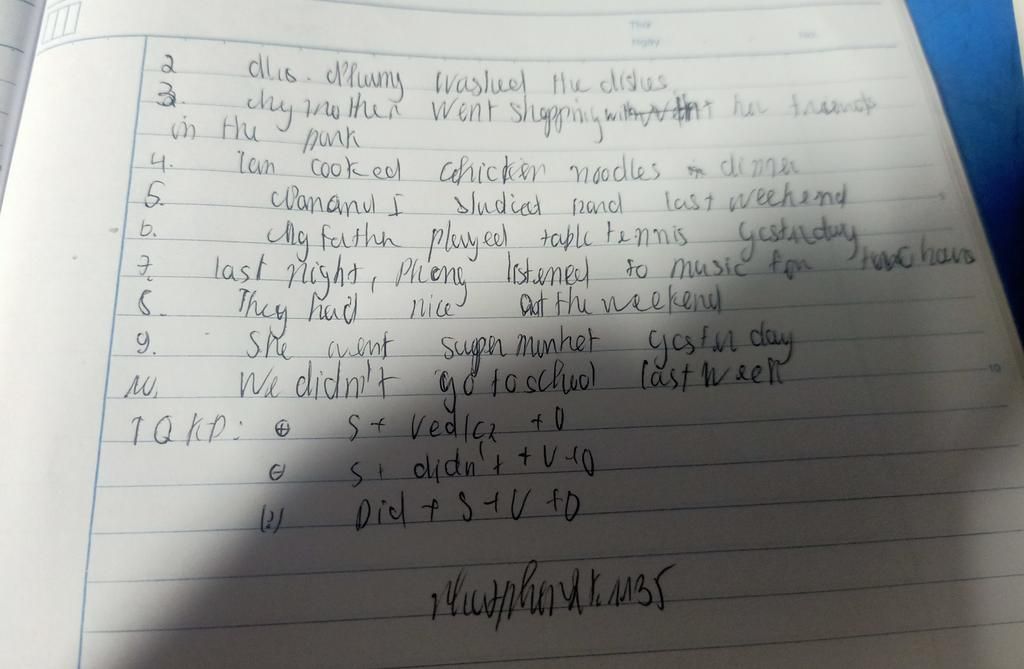 2 Mrs. Phuong washed the dishes.
3. My mother went shopping with her friends
in the park
4. Lan cooked chicken noodles dinner
5. and I studied hard last weekend
6. My father played table tennis yesterday
7. last night, Phong listened to music for hours
8. They had nice at the weekend
9. She went super market yesterday
10, We didn't go to school last week
TQKĐ: ⊕ S + Ved/c2 + O
⊖ S + didn't + V + O
(?) Did + S + V + O